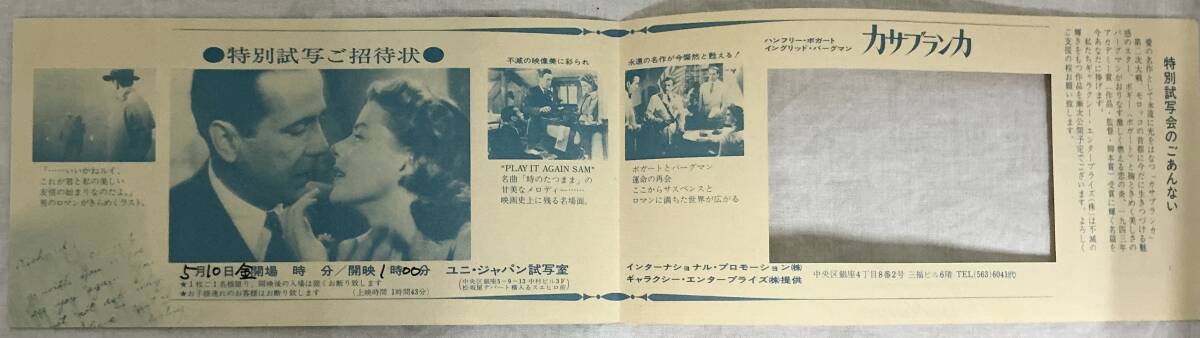 ●特別試写ご招待状●
「……いいかねルイ、
これが君と私の美しい
友情の始まりなのだよ。」
男のロマンがきらめくラスト。
不滅の映像美に彩られ
"PLAY IT AGAIN SAM"
名曲「時のたつまま」の
甘美なメロディー……
映画史上に残る名場面。
5月10日金開場 時 分/開映1時00分
ユニ・ジャパン試写室
★1枚に1名様限り、開映後の入場は固くお断り致します
★お子様連れのお客様はお断り致します (上映時間 1時間43分)
(中央区銀座5-9-13 中村ビル3F
松坂屋デパート横入るスエヒロ前)
永遠の名作が今燦然と甦える!
ボガートとバーグマン
運命の再会
ここからサスペンスと
ロマンに満ちた世界が広がる
ハンフリー・ボガート
イングリッド・バーグマン
カサブランカ
インターナショナル・プロモーション(株)
ギャラクシー・エンタープライズ(株)提供
中央区銀座4丁目8番2号 三福ビル6階 TEL(563)6041(代)
特別試写会のごあんない
愛の名作として永遠に光をはなつ「カサブランカ」
第二次大戦、モロッコの首都に今だに生きつづける魅
惑のスター、ボギー(ボガート)と胸ときめく美しさの
バーグマンがおりなす激しく燃える恋の炎、一九四三年
アカデミー賞(作品、監督、脚本賞)受賞に輝く名篇を
今あなたに捧げます。
私たちギャラクシー・エンタープライズ(株)は不滅の
輝きをもつ作品を順次公開予定でございます。よろしく
ご支援の程お願い致します。